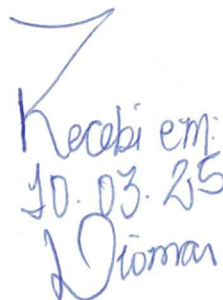 Recebi em:
10.03.25
Diomar